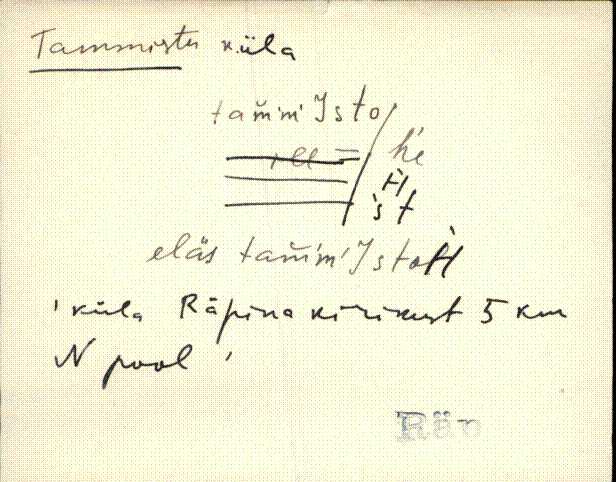 Tammistu küla
tam̆m'Isto/
h'e
H
'st
eläs tam̆m'IstoH
'küla Räpina kirikust 5 km
N pool'
Räp